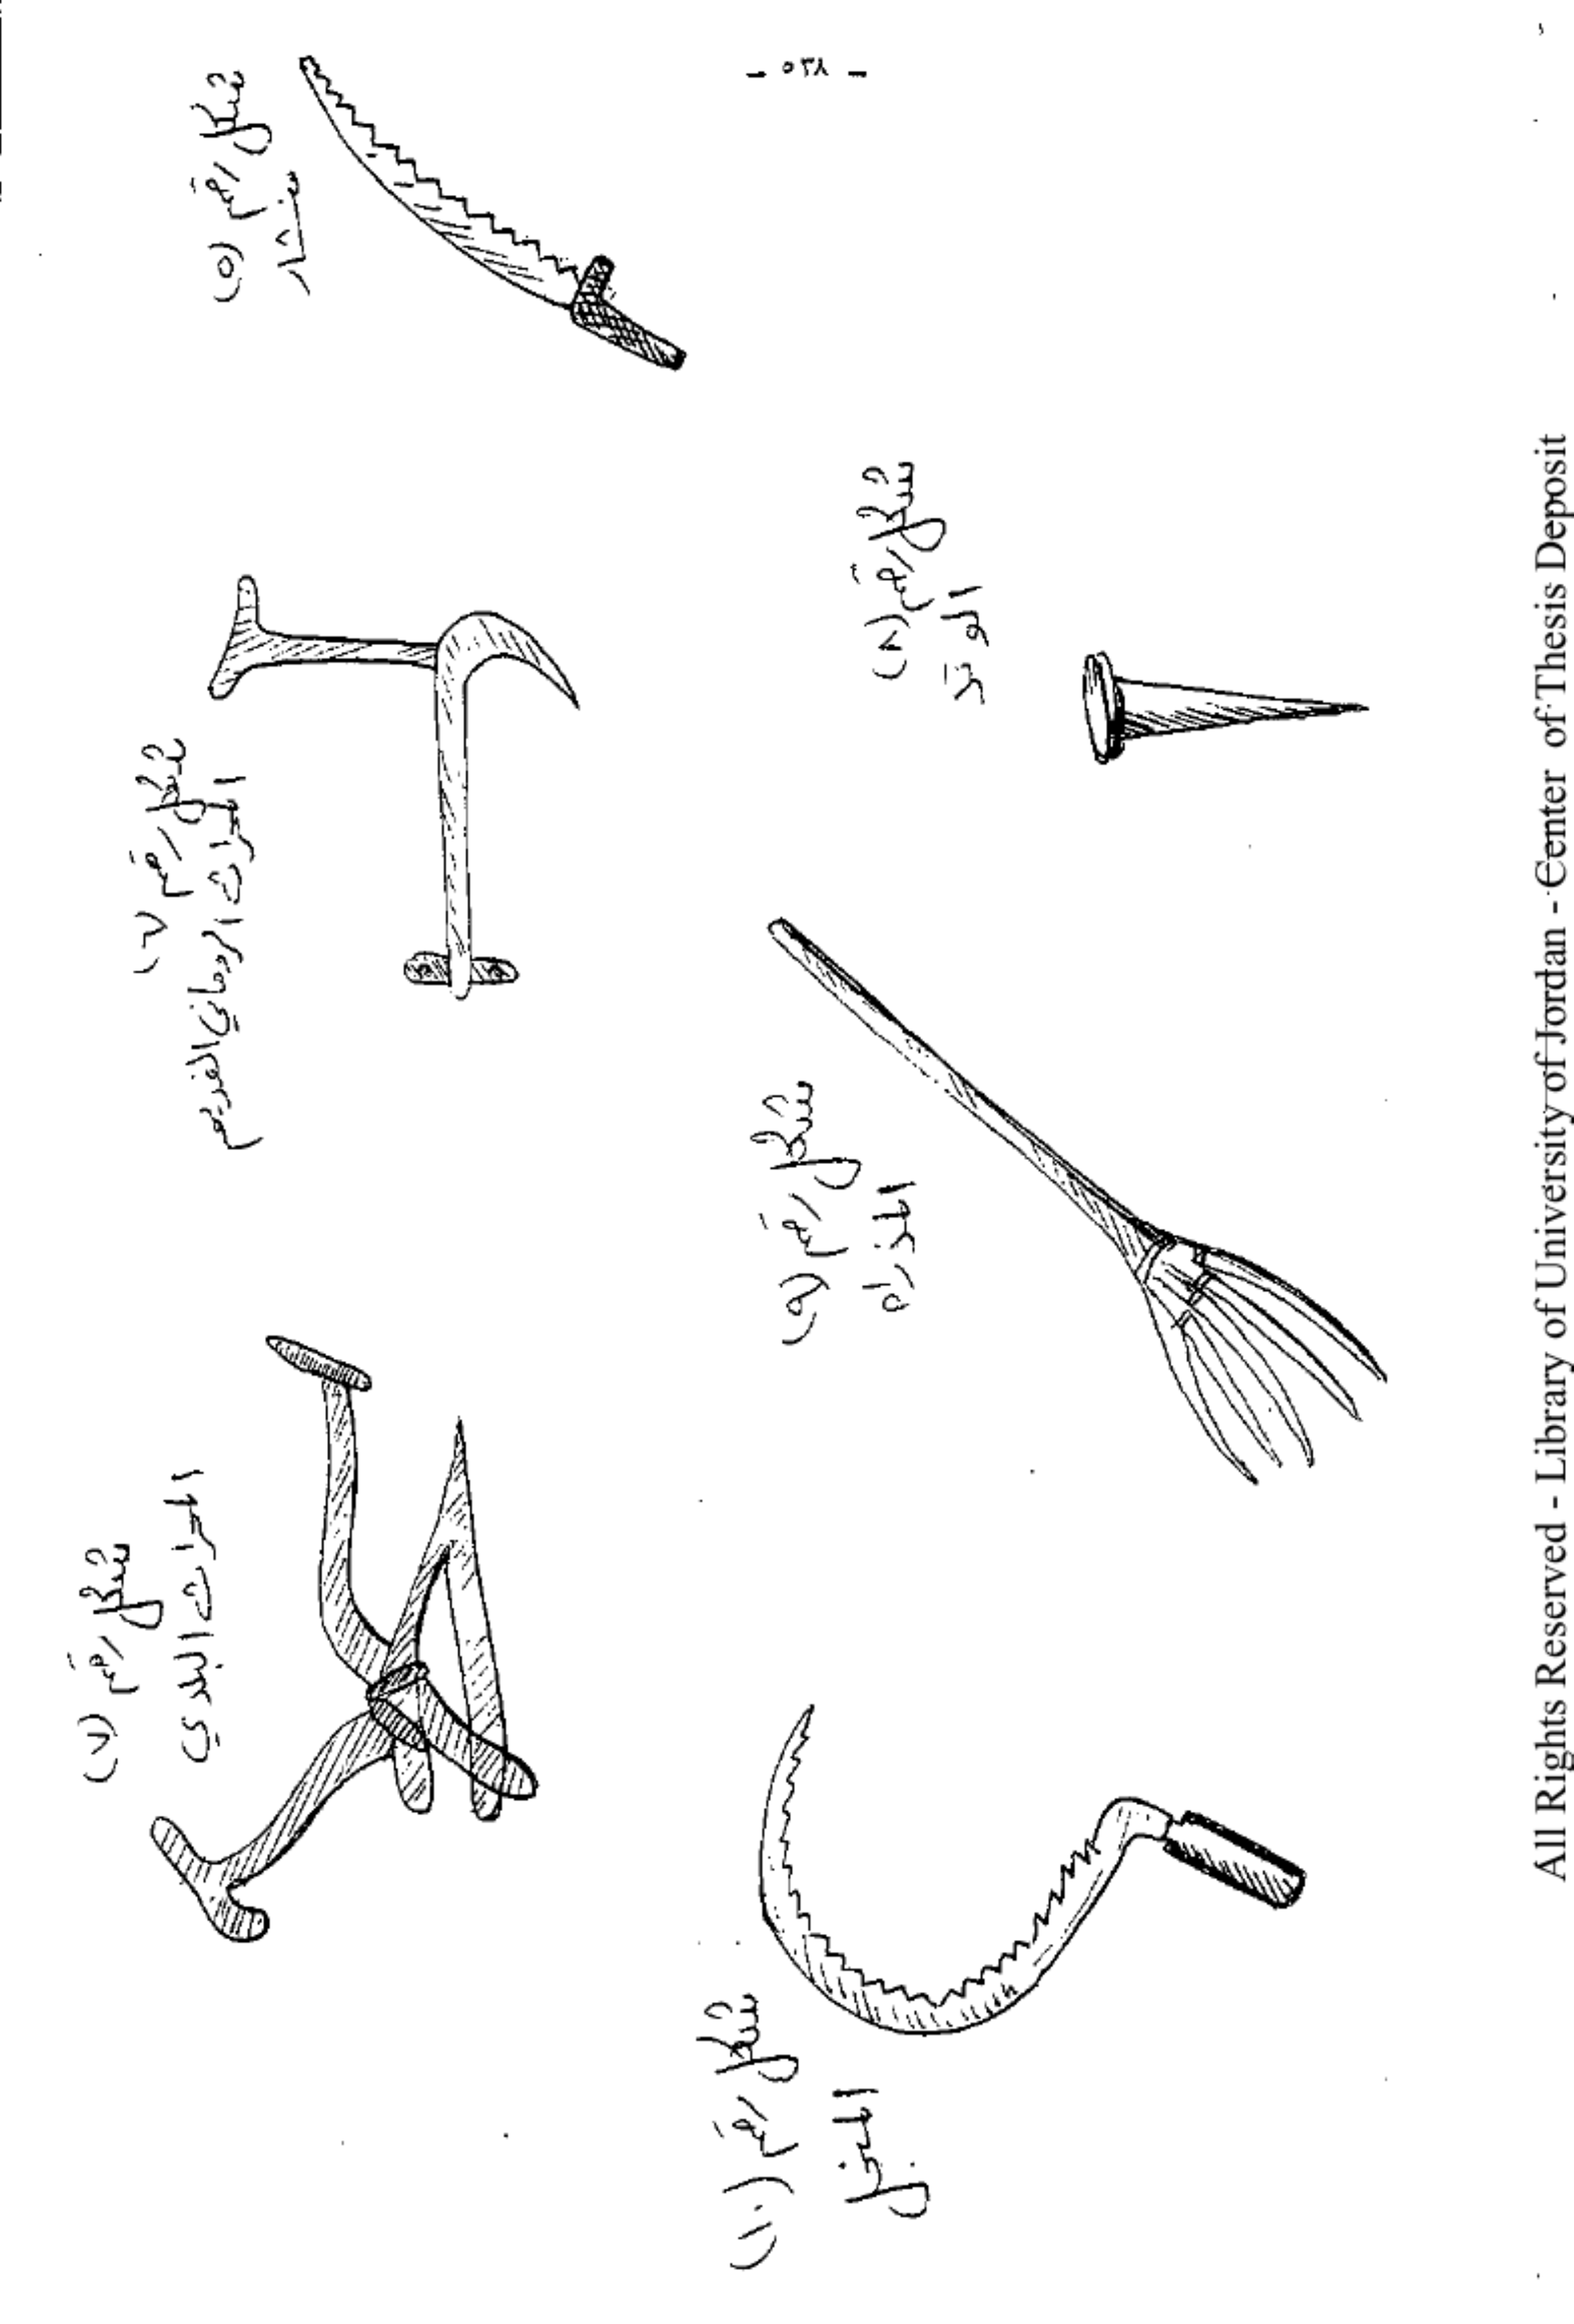 - ٥٣٨ -
شكل رقم (٥)
منشار
شكل رقم (٦)
المحراث الروماني القديم
شكل رقم (٧)
المحراث البلدي
شكل رقم (٨)
الوتد
شكل رقم (٩)
المذراه
شكل رقم (١٠)
المنجل
All Rights Reserved - Library of University of Jordan - Center of Thesis Deposit